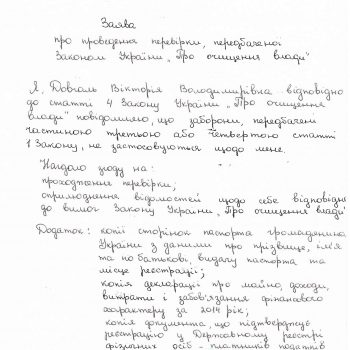 Заява
про проведення перевірки, передбаченої
Законом України „Про очищення влади"
Я, Довгаль Вікторія Володимирівна відповідно
до статті 4 Закону України „Про очищення
влади" повідомляю, що заборони, передбачені
частиною третьою або четвертою статті
1 Закону, не застосовуються щодо мене.
Надаю згоду на:
проходження перевірки;
оприлюднення відомостей щодо себе відповідно
до вимог Закону України „Про очищення влади"
Додаток: копії сторінок паспорта громадянина
України з даними про прізвище, ім'я
та по батькові, видачу паспорта та
місце реєстрації;
копія декларації про майно, доходи,
витрати і зобов'язання фінансового
характеру за 2014 рік;
копія документа, що підтверджує
реєстрацію у Державному реєстрі
фізичних осіб - платників податків